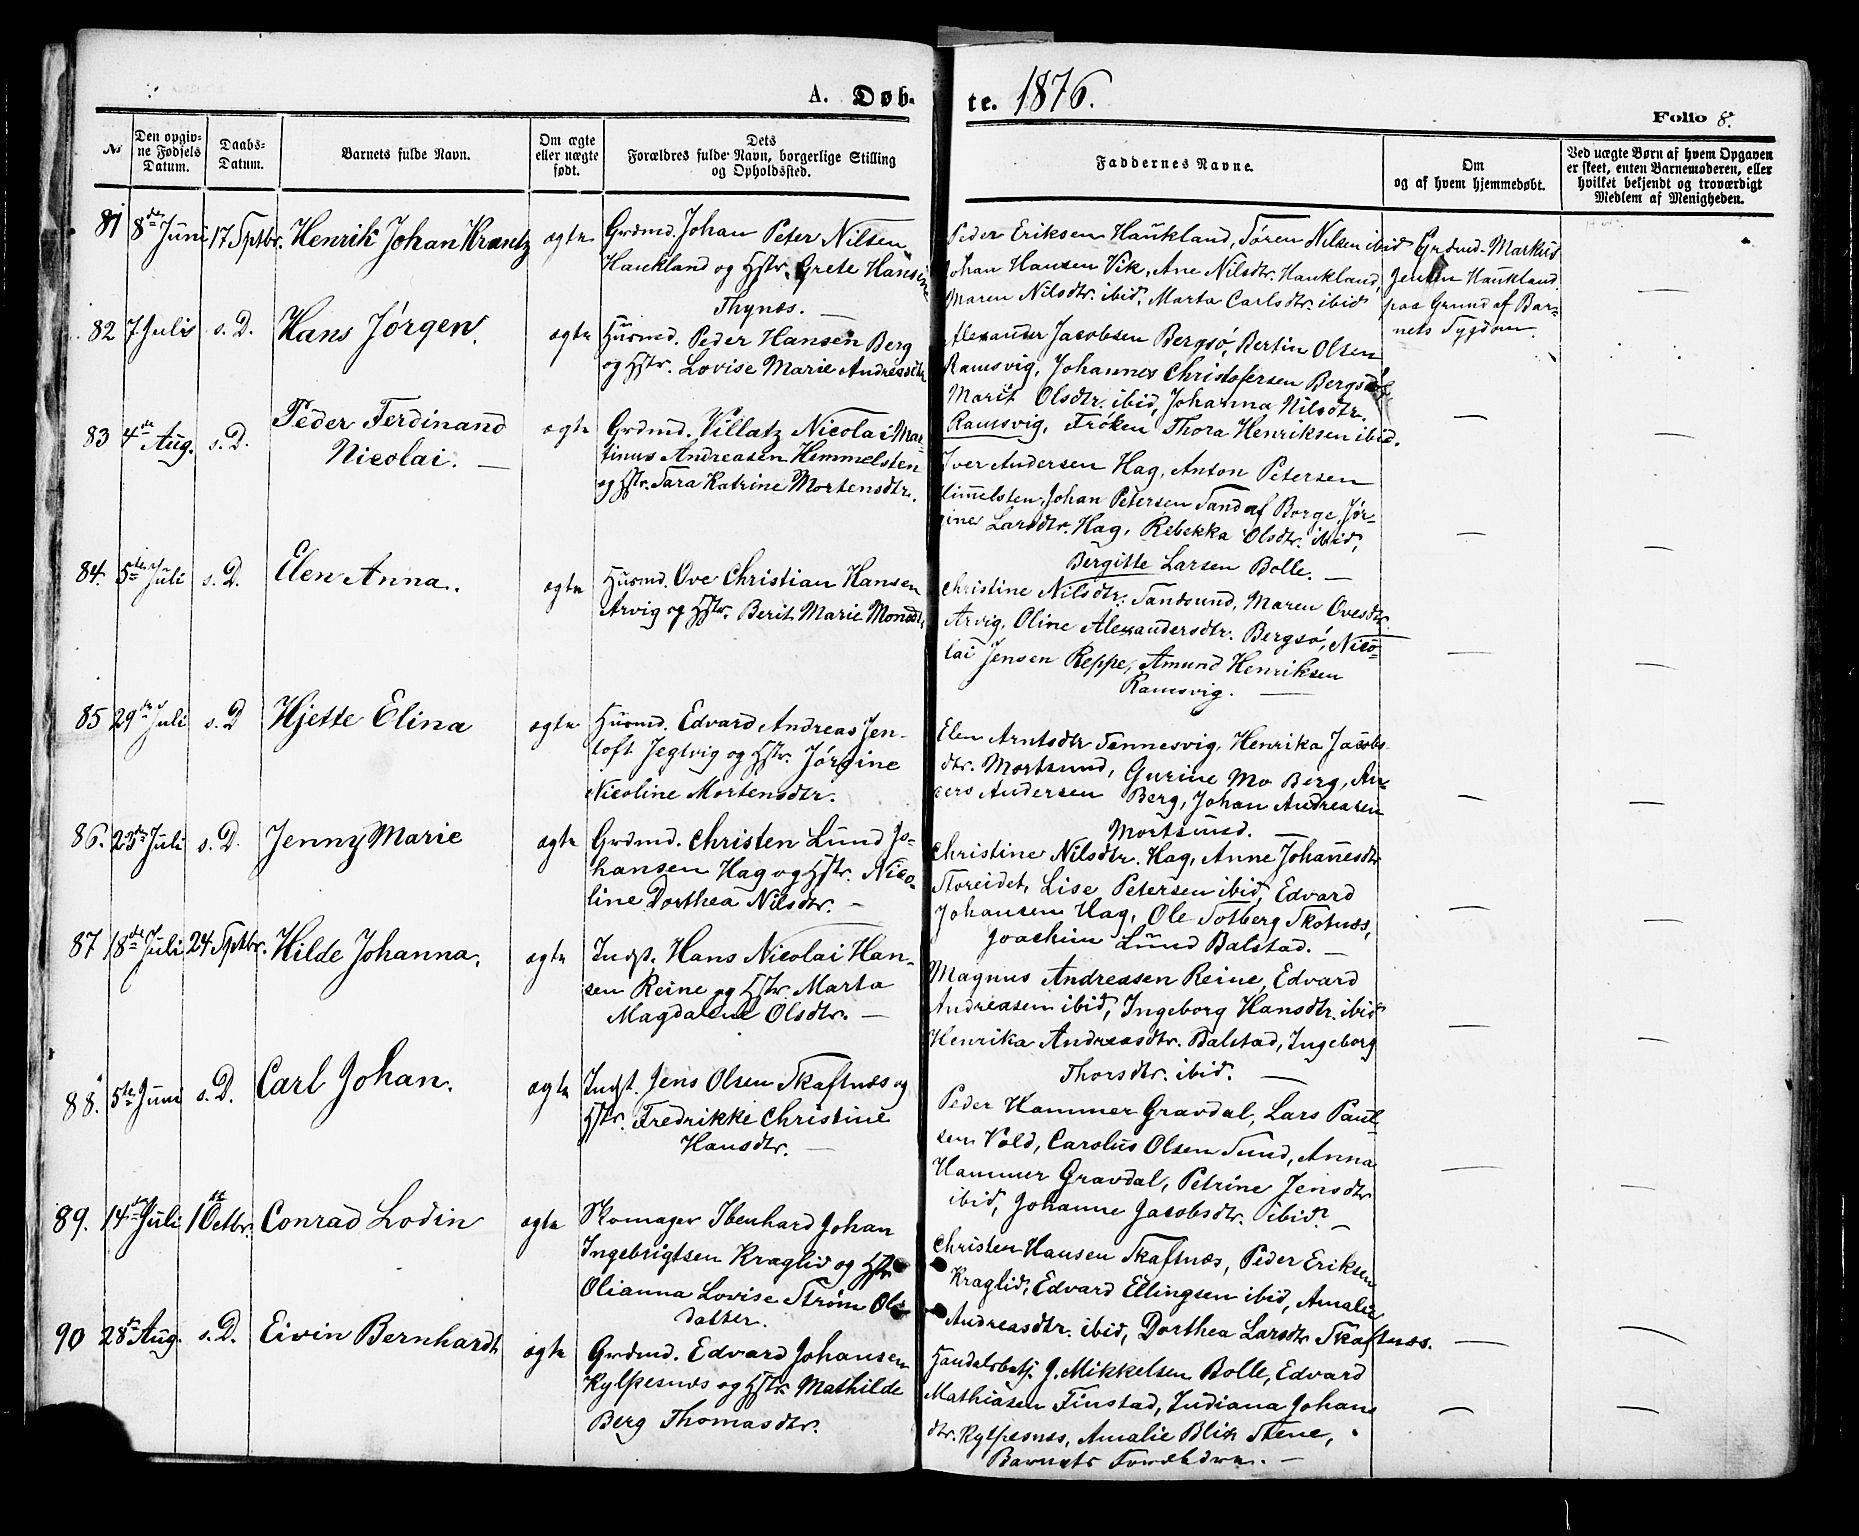 A. Døb-
te. 1876.
Folio 8.
No
Den opgiv-
ne Fødsels
Datum.
Daabs-
Datum.
Barnets fulde Navn.
Om ægte
eller uægte
født.
Dets
Forældres fulde Navn, borgerlige Stilling
og Opholdssted.
Faddernes Navne.
Om
og af hvem hjemmedøbt.
Ved uægte Børn af hvem Opgaven
er skeet, enten Barnemoderen, eller
hvilket bekjendt og troværdigt
Medlem af Menigheden.
81 8de Juni 17 Sptbr. Henrik Johan Krantz ægte
Grdmd. Johan Peter Nilsen
Haukland og Hstr. Grete Hansine
Thynæs. —
Peder Eriksen Haukland, Søren Nilsen ibid
Johan Hansen Vik, Ane Nilsdtr. Haukland,
Maren Nilsdtr. ibid, Marta Carlsdtr. ibid
Grdmd. Markus
Jensen Haukland
paa Grund af Bar-
nets Sygdom.
—
82 7 Juli s. D. Hans Jørgen. ægte
Husmd. Peder Hansen Berg
og Hstr. Lovise Marie Andreasdtr
Alexander Jacobsen Bergsø, Bertin Olsen
Ramsvig, Johannes Christofersen Bergsø,
Marit Olsdtr. ibid, Johanna Nilsdtr.
Ramsvig, Frøken Thora Henriksen ibid.
— —
83 4de Aug. s. D. Peder Ferdinand
Nicolai. — ægte
Grdmd. Villatz Nicolai Mar-
tinus Andreasen Himmelsten
og Hstr. Sara Katrine Mortensdtr.
Iver Andersen Hag, Anton Petersen
Himelsten, Johan Petersen Sand af Borge, Jør-
gine Larsdtr. Hag, Rebekka Olsdtr. ibid,
Bergitte Larsen Bolle. —
— —
84. 5te Juli s. D. Elen Anna. ægte
Husmd. Ove Christian Hansen
Arvig og Hstr. Berit Marie Monsdtr.
Christine Nilsdtr. Sandsund, Maren Ovesdtr.
Arvig, Oline Alexandersdtr. Bergsø, Nico-
lai Jensen Reppe, Amund Henriksen
Ramsvig. —
— —
85 29de Juli s. D Hjette Elina ægte
Husmd. Edvard Andreas Jen-
toft Jegtvig og Hstr. Jørgine
Nicoline Mortensdtr.
Elen Arntsdtr Sennesvig, Henrika Jacobs-
dtr. Mortsund, Gurine Mo Berg, An-
ders Andersen Berg, Johan Andreasen
Mortsund. —
— —
86. 23de Juli s. D. Jenny Marie ægte
Grdmd. Christen Lund Jo-
hansen Hag og Hstr. Nico-
line Dorthea Nilsdtr. —
Christine Nilsdtr. Hag, Anne Johanesdtr
Storeidet, Lise Petersen ibid, Edvard
Johansen Hag, Ole Solberg Skotnæs,
Joachim Lund Balstad. —
— —
87 18de Juli 24 Sptbr. Hilde Johanna. ægte
Indst. Hans Nicolai Han-
sen Reine og Hstr. Marta
Magdalene Olsdtr. —
Magnus Andreasen Reine, Edvard
Andreasen ibid, Ingeborg Hansdtr. ibid
Henrika Andreasdtr. Balstad, Ingeborg
Thorsdtr. ibid. —
— —
88. 5te Juni s. D. Carl Johan. ægte
Indst. Jens Olsen Skaftnæs og
Hstr. Fredrikke Christine
Hansdtr. —
Peder Hammer Gravdal, Lars Paul-
sen Vold, Carolus Olsen Sund, Anna
Hammer Gravdal, Petrine Jensdtr
ibid, Johanne Jacobsdtr. ibid. —
— —
89. 14de Juli 1 Octbr. Conrad Lodin ægte
Skomager Ibenhard Johan
Ingebrigtsen Kraglid og Hstr
Olianna Lovise Strøm Ols-
datter.
Christen Hansen Skaftnæs, Peder Eriksen
Kraglid, Edvard Ellingsen ibid, Amalie
Andreasdtr. ibid, Dorthea Larsdtr Skaftnæs.
— —
90 28de Aug. s. D. Eivin Bernhardt ægte
Grdmd. Edvard Johansen
Kylpesnæs og Hstr. Mathilde
Berg Thomasdtr.
Handelsbetj. J. Mikkelsen Bolle, Edvard
Mathiasen Finstad, Indiana Johans
dtr. Kylpesnæs, Amalie Blix Stene,
Barnets Forældre. —
— —